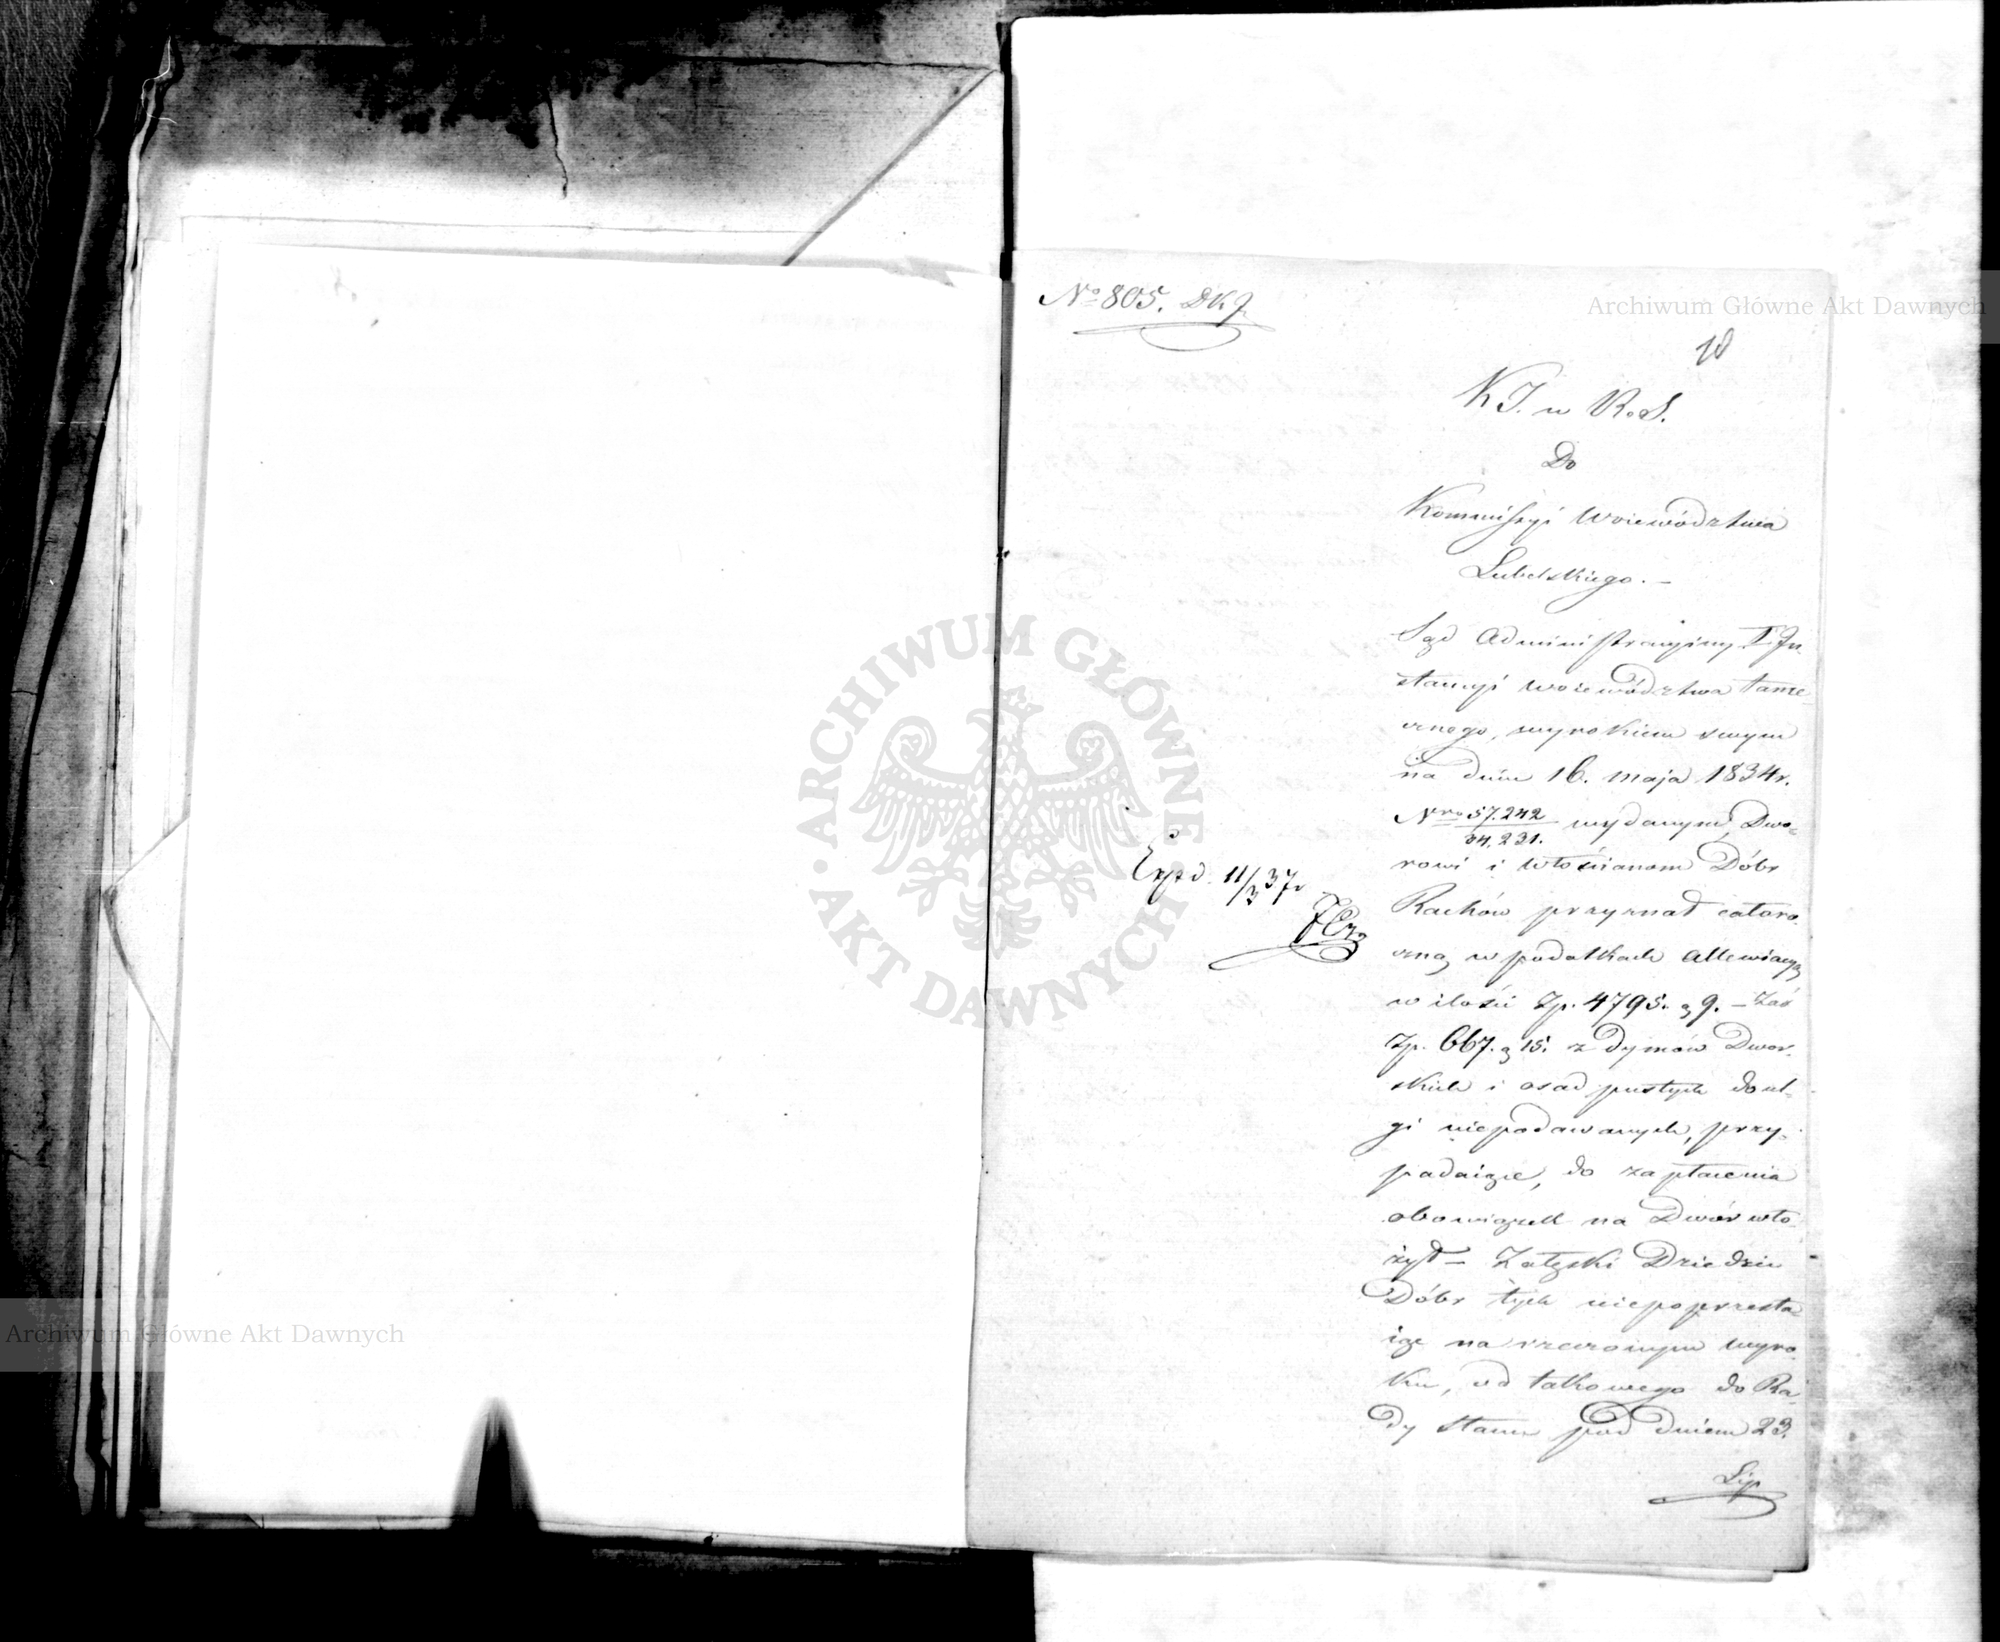 No 805. DKJ
Archiwum Główne Akt Dawnych
10
K J. w R. S.
Do
Kommissyi Woiewództwa
Lubelskiego. –
Sąd Administracyiny I In-
stancyi Woiewództwa tame-
cznego, wyrokiem swym
na dniu 16. maja 1834 r.
Nro 57.242
34,231. wydanym, Dwo-
rowi i Włościanom Dóbr
Rachów przyznał całoro-
czną w podatkach allewiacyą
w ilości Zp. 4795. g 9. – zaś
Zp. 667. g 15. z dymów Dwor-
skich i osad pustych do ul-
gi niepodawanych, przy-
padaiące, do zapłacenia
obowiązek na Dwór wło-
żył – Załęski Dziedzic
Dóbr tych niepoprzesta-
iąc na rzeczonym wyro-
ku, od takowego do Ra-
dy Stanu pod dniem 23.
Lip
Exp d. 11/3 37 r
ARCHIWUM GŁÓWNE
AKT DAWNYCH
Archiwum Główne Akt Dawnych